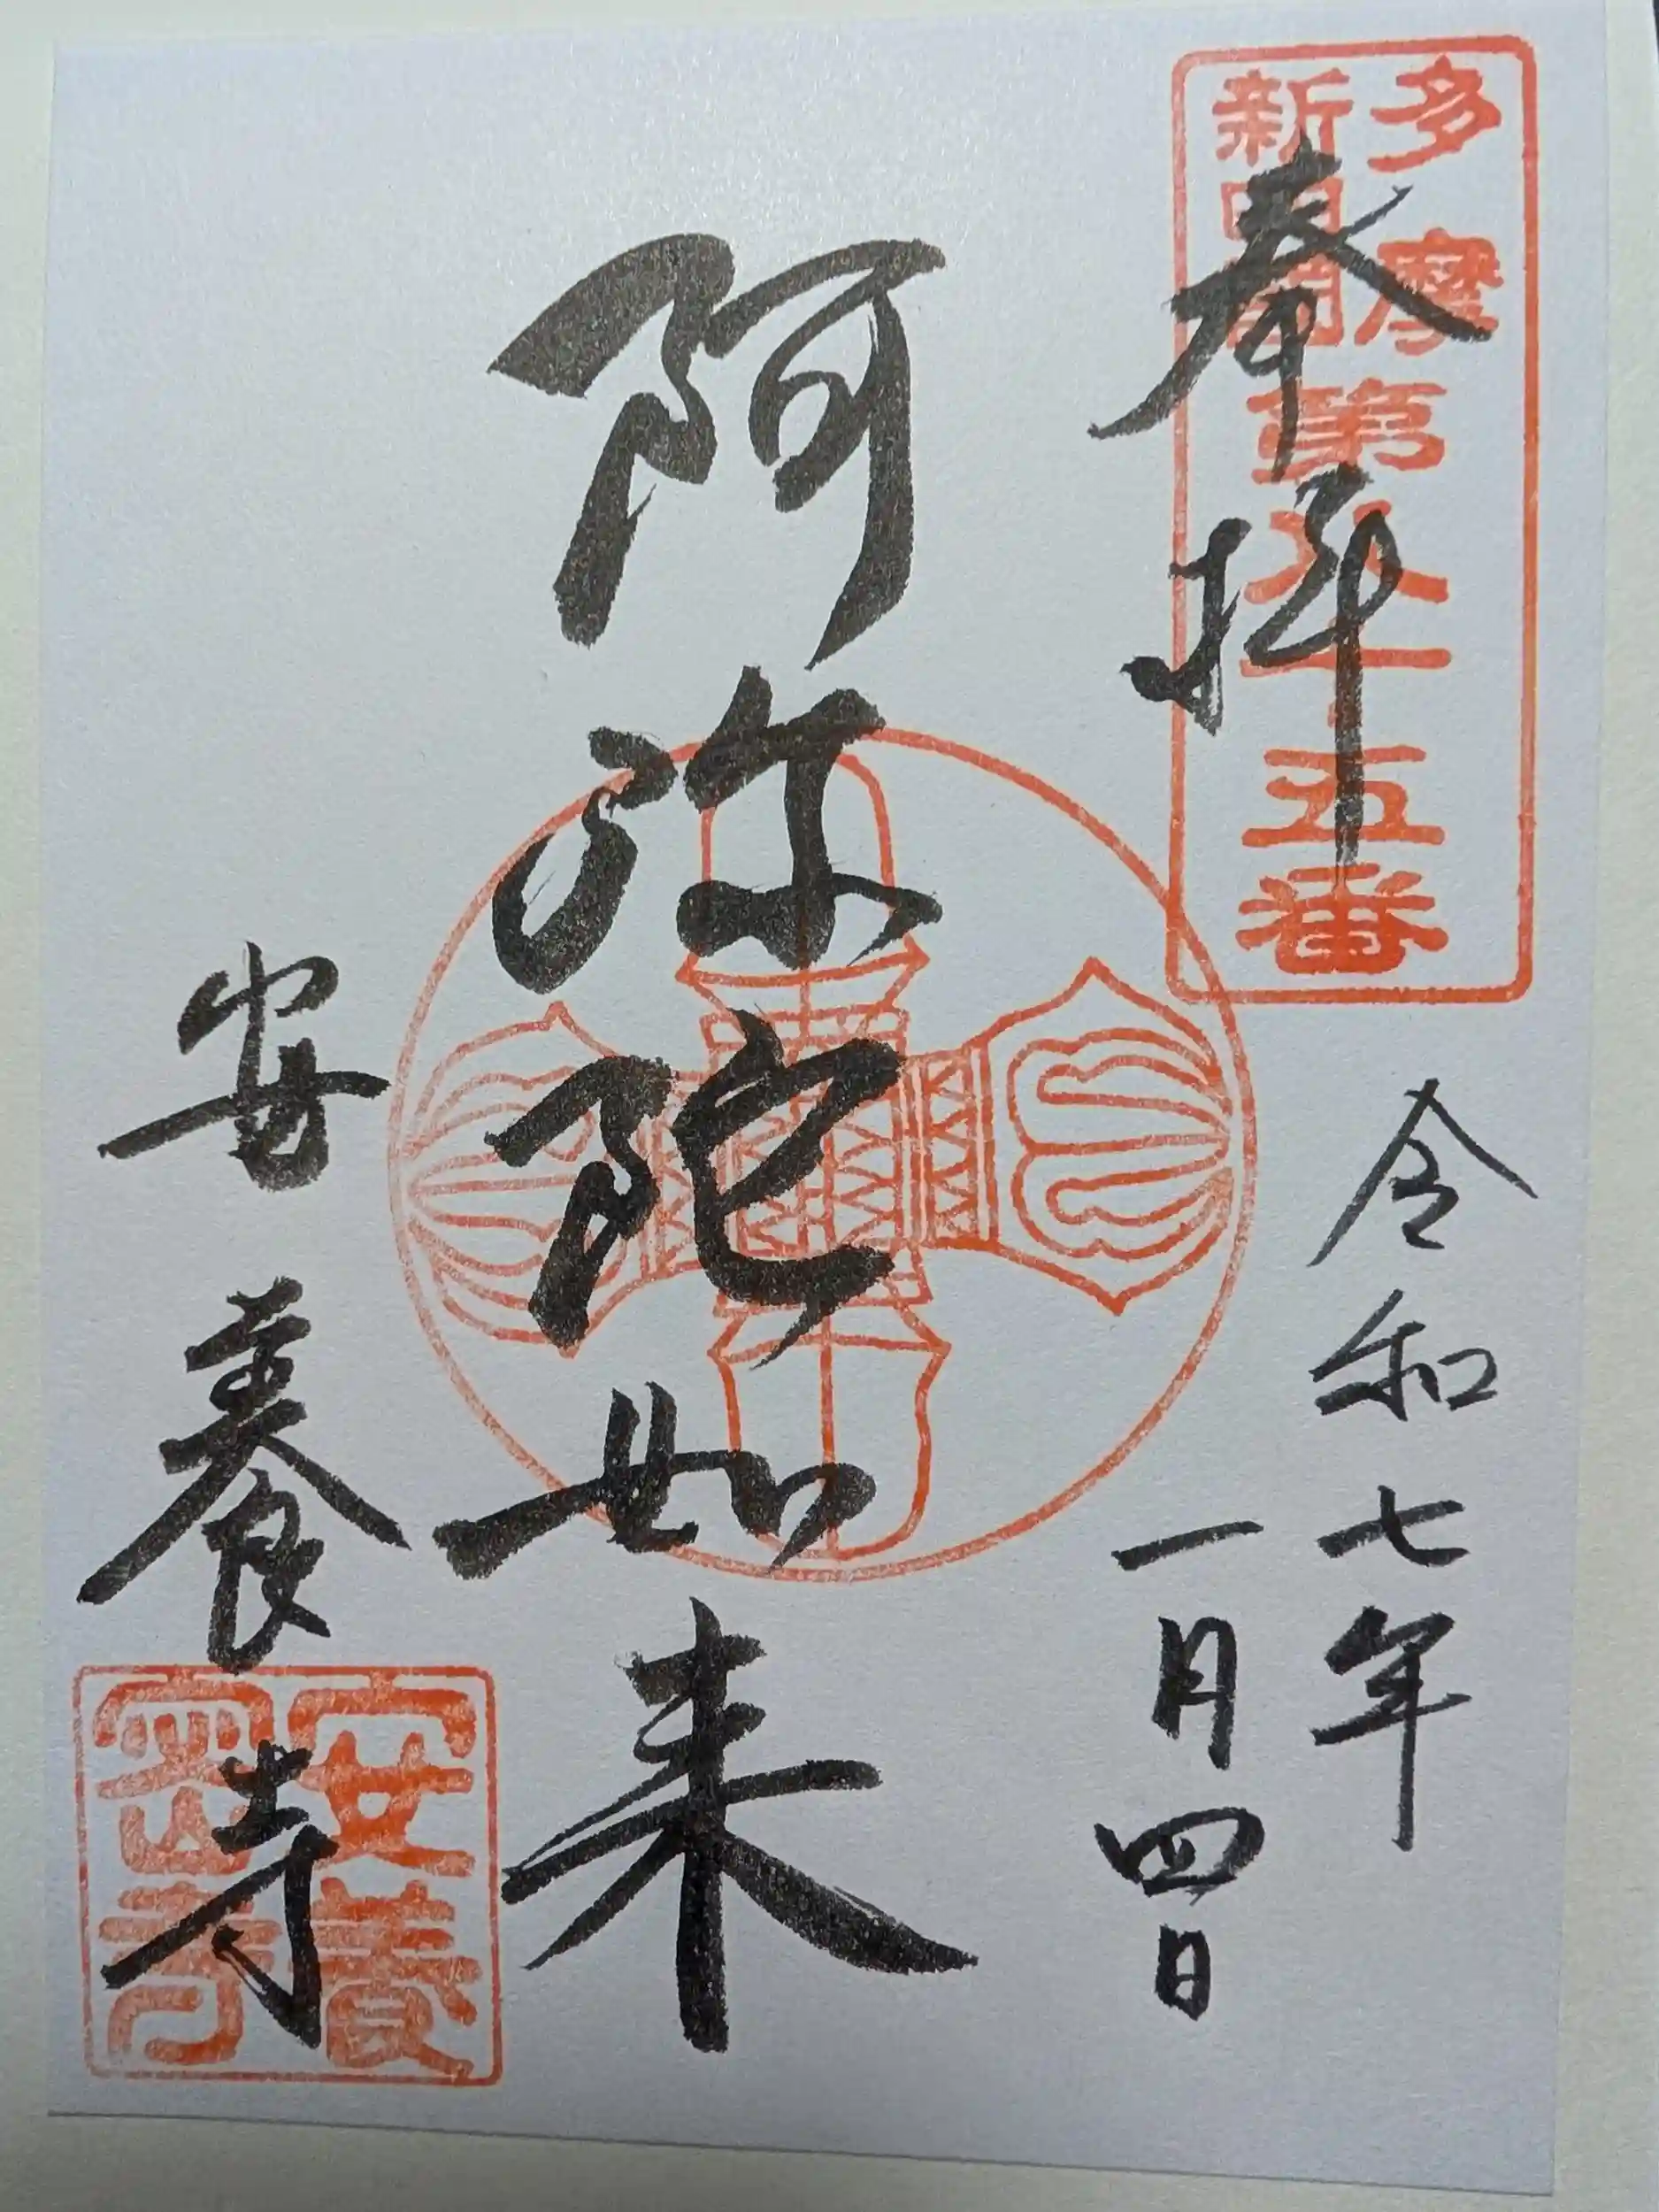 多摩
新四国
第八十五番
奉拝
令和七年
一月四日
阿弥陀如来
安養寺
安養
密寺